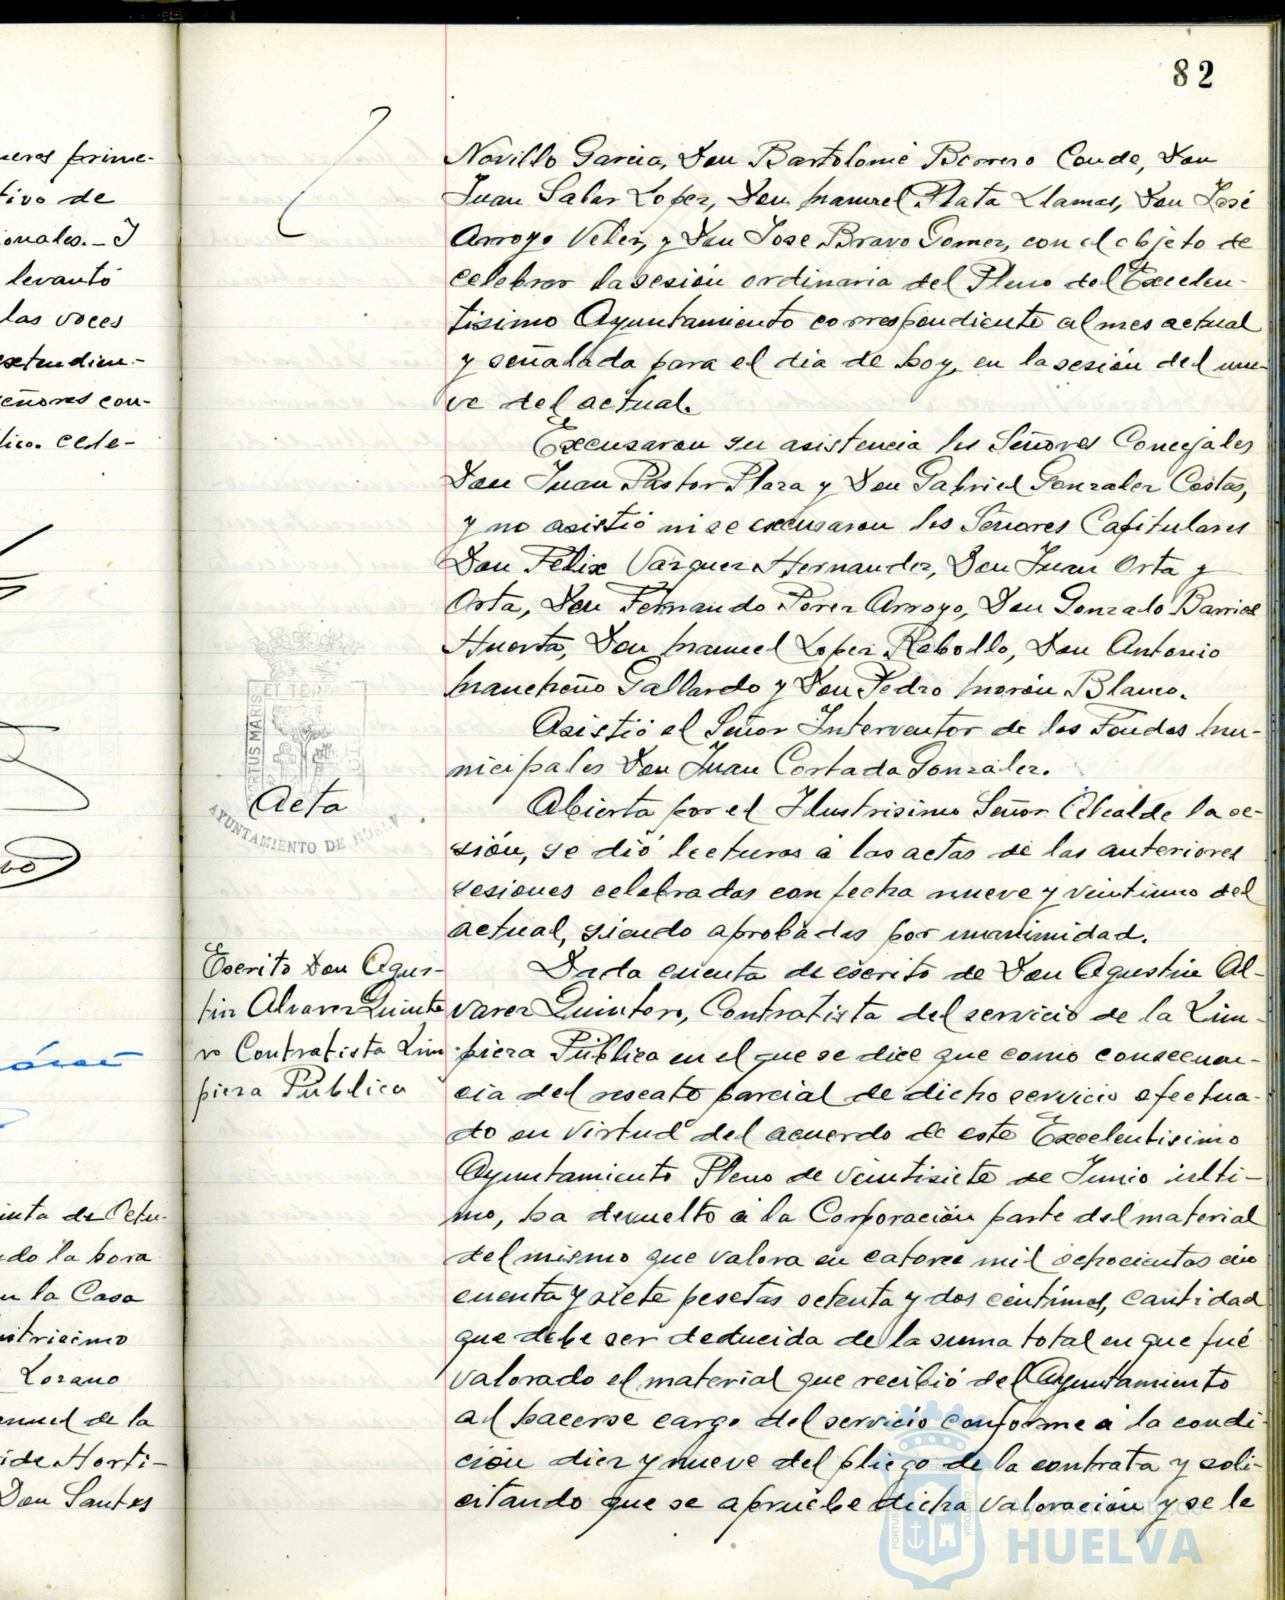 82
Novillo Garcia, Don Bartolomé Borrero Conde, Don
Juan Salas Lopez, Don Manuel Plata Llamas, Don José
Arroyo Velez, y Don Jose Bravo Gomez, con el objeto de
celebrar la sesión ordinaria del Pleno del Excelen-
tisimo Ayuntamiento correspondiente al mes actual
y señalada para el dia de hoy, en la sesión del nue-
ve del actual.
Excusaron su asistencia los Señores Concejales
Don Juan Pastor Plaza y Don Gabriel Gonzalez Costas,
y no asistió ni se excusaron los Señores Capitulares
Don Félix Vazquez Hernandez, Don Juan Orta y
Orta, Don Fernando Perez Arroyo, Don Gonzalo Barrios
Huerta, Don Manuel Lopez Rebollo, Don Antonio
Mancheño Gallardo y Don Pedro Morón Blanco.
Asistió el Señor Interventor de los Fondos Mu-
nicipales Don Juan Cortada Gonzalez.
Acta
Abierta por el Ilustrisimo Señor Alcalde la se-
sión, se dió lecturas á las actas de las anteriores
sesiones celebradas con fecha nueve y veintiuno del
actual, siendo aprobadas por unanimidad.
Escrito Don Agus-
tin Alvarez Quinte
ro Contratista Lim
pieza Pública
Dada cuenta de escrito de Don Agustin Al-
varez Quintero, Contratista del servicio de la Lim-
pieza Pública en el que se dice que como consecuen-
cia del rescate parcial de dicho servicio efectua-
do en virtud del acuerdo de este Excelentisimo
Ayuntamiento Pleno de veintisiete de Junio ulti-
mo, ha devuelto á la Corporación parte del material
del mismo que valora en catorce mil ochocientas cin
cuenta y siete pesetas setenta y dos céntimos, cantidad
que debe ser deducida de la suma total en que fué
valorado el material que recibió del Ayuntamiento
al hacerse cargo del servicio conforme á la condi-
ción diez y nueve del pliego de la contrata y soli-
citando que se apruebe dicha valoración y se le
neres prime-
tivo de
ionales.- I
levantó
las voces
extendien-
eñores con-
lico. cele-
inta de Octu-
do la hora
en la Casa
ustrisimo
Lozano
anuel de la
ide Horti-
Don Santos
PORTUS MARIS
ET TER
AYUNTAMIENTO DE HUELV
Ayuntamiento de
HUELVA